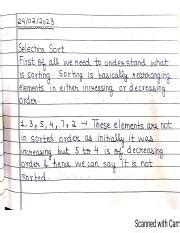 24/02/2023
Selection Sort
First of all we need to understand what
is sorting. Sorting is basically rearranging
elements in either increasing or decreasing
order.
1, 3, 5, 4, 7, 2 → These elements are not
in sorted order as initially it was
increasing but 5 to 4 is of decreasing
order & hence we can say it is not
sorted.
Scanned with Cam